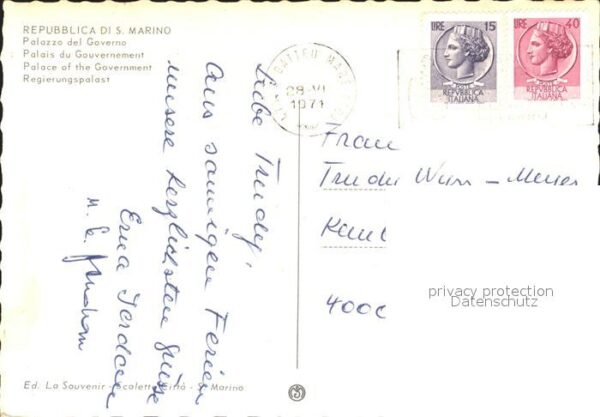 REPUBBLICA DI S. MARINO
Palazzo del Governo
Palais du Gouvernement
Palace of the Government
Regierungspalast
LIRE 15
POSTE
REPUBBLICA
ITALIANA
LIRE 40
POSTE
REPUBBLICA
ITALIANA
28-VI
1971
Liebe Trudy,
Aus sonnigen Ferien
unsere herzlichsten Grüsse
Erna
Frau
privacy protection
Datenschutz
400
Ed. La Souvenir - Scaletta Città - S. Marino